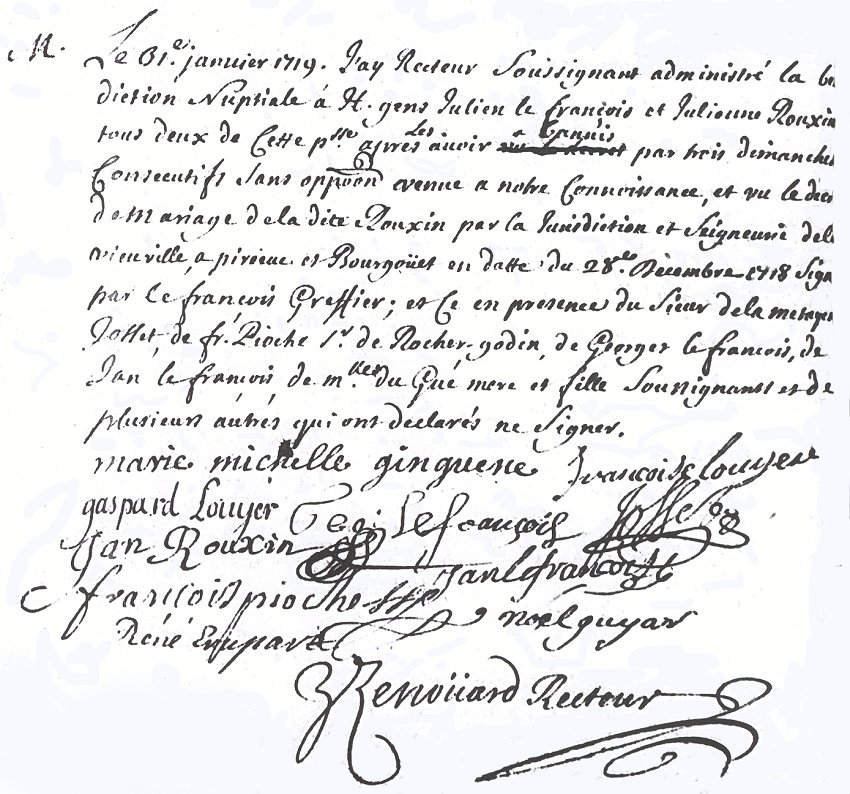 M. Le 31.e janvier 1719. J'ay Recteur Soussignant administré la
diction Nuptiale à H. gens Julien le françois et Julienne Rouxin
tous deux de Cette psse après avoir les Bannis par trois dimanches
Consecutifs Sans oppoon avenue a notre Connoissance, et vu le
de mariage de la dite Rouxin par la Jurisdiction et Seigneurie
vieuville, a et Bourgoüet en datte du 28.e Décembre 1718
par le françois Greffier; et Ce en presence du Sieur de la
Josset de fr. Pioche Sr. de Rocher-godin, de Georges le francois, de
Jan le francois de mlles du Gué mere et fille Soussignants et de
plusieurs autrés qui ont declarés ne Signer.
marie michelle ginguene françoise louyer
gaspard Louyer Geo: Lefrançois Josset
Jan Rouxin Jan lefrancois
françois pioche
René noel guyar
Renoüard Recteur